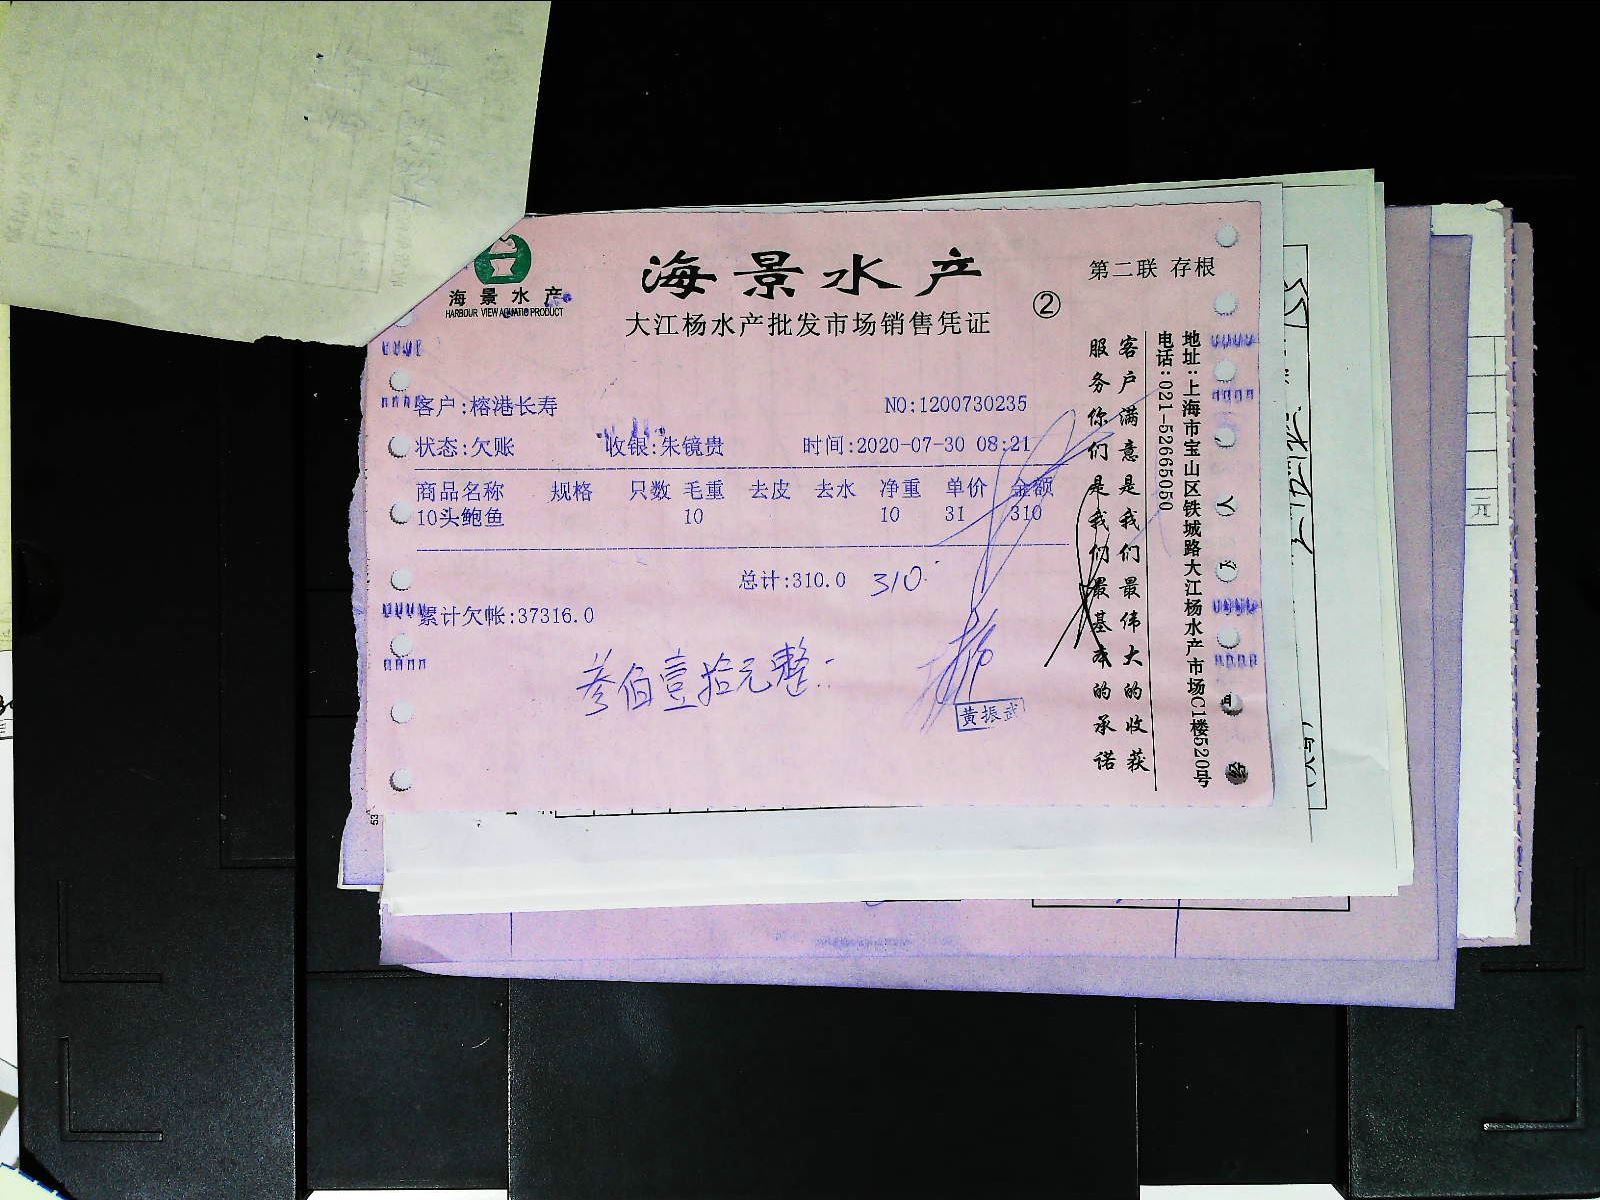 海景水产
HARBOUR VIEW AQUATIC PRODUCT
海景水产
大江杨水产批发市场销售凭证
②
第二联 存根
客户:榕港长寿 NO:1200730235
状态:欠账 收银:朱镜贵 时间:2020-07-30 08:21
商品名称 规格 只数 毛重 去皮 去水 净重 单价 金额
10头鲍鱼 10 10 31 310
总计:310.0 310
累计欠帐:37316.0
叁佰壹拾元整
黄振武
客户满意是我们最伟大的收获
服务你们是我们最基本的承诺
地址:上海市宝山区铁城路大江杨水产市场C1楼520号
电话:021-52665050
元